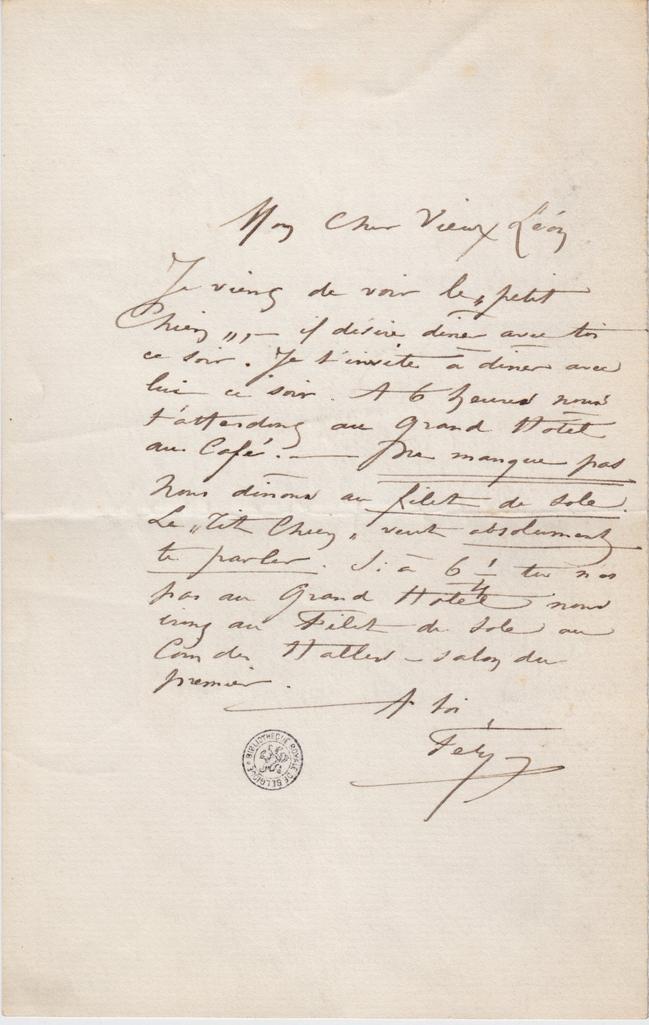 Mon Cher Vieux Léon
Je viens de voir le „petit
Chien„, — il désire diner avec toi
ce soir. Je t'invite à diner avec
lui ce soir. A 6 heures nous
t'attendons au Grand Hotel
au Café. — Ne manque pas
Nous dinons au filet de Sole.
Le „Tit Chien„ veut absolument
te parler. Si à 6 1/4 tu n'es
pas au Grand Hotel nous
irons au Filet de Sole au
Coin des Halles – salon du
premier.
A toi
Fély
BIBLIOTHEQUE ROYALE DE BELGIQUE